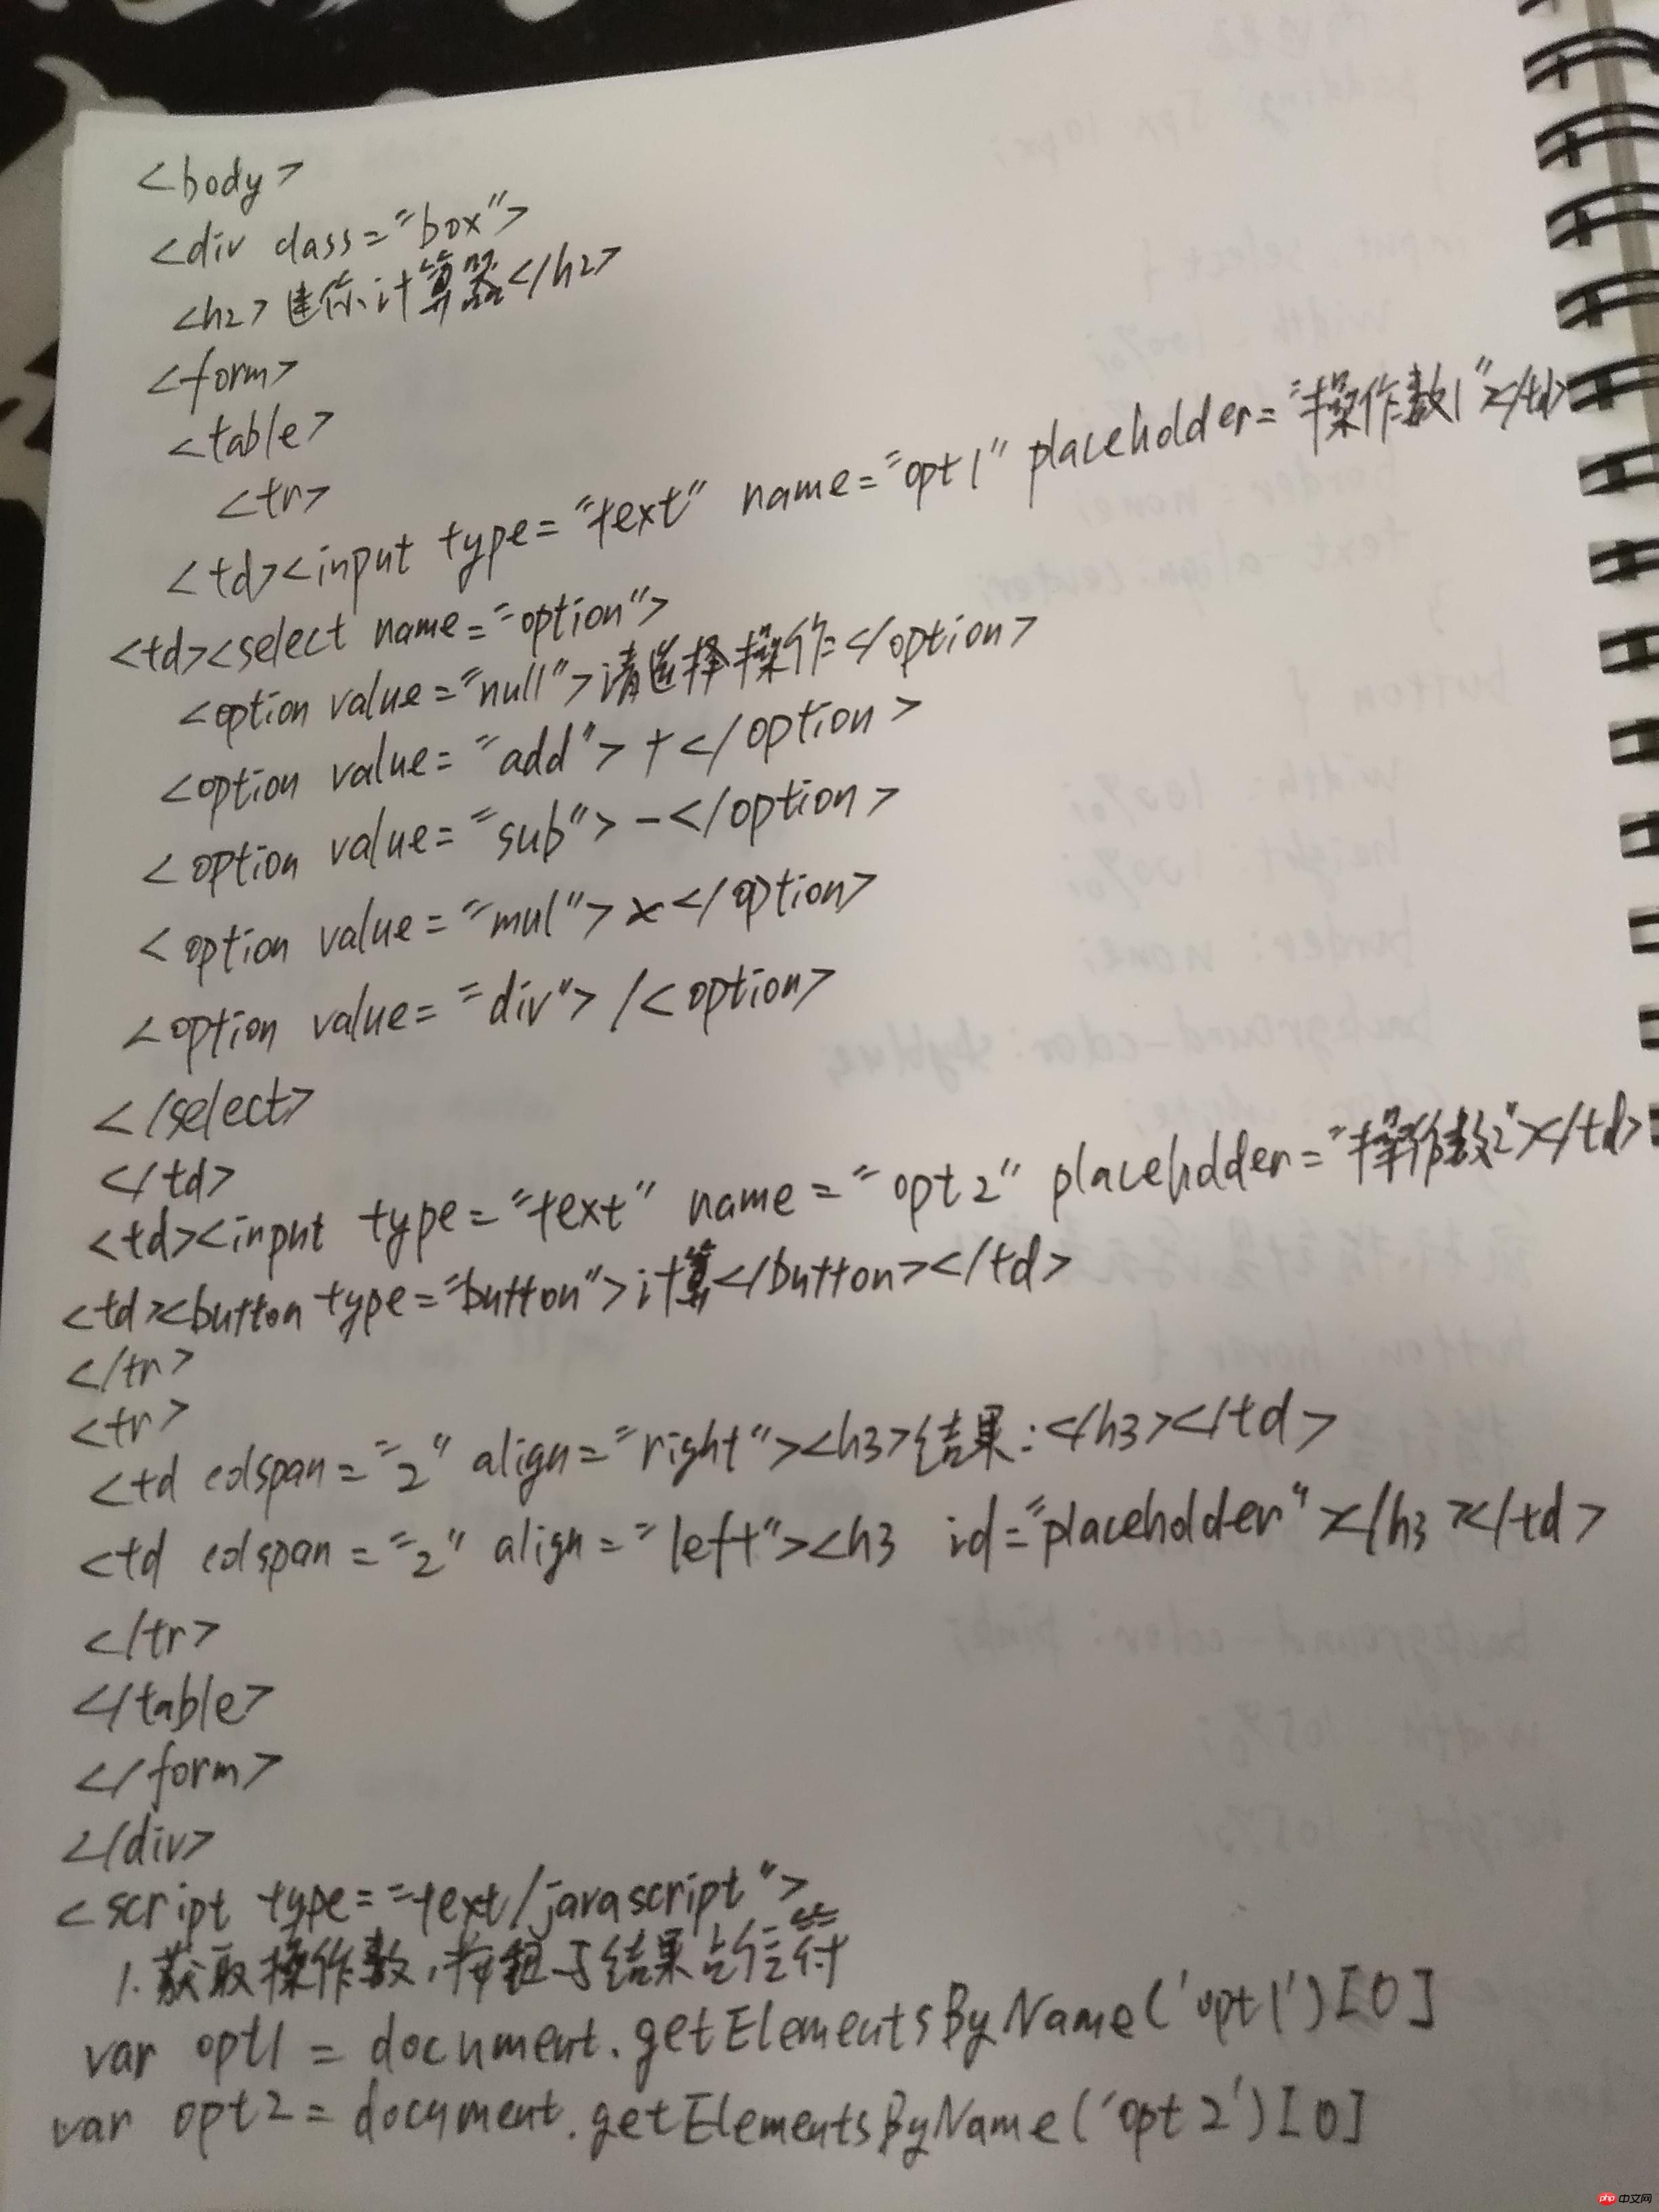 <body>
<div class="box">
<h2>迷你计算器</h2>
<form>
<table>
<tr>
<td><input type="text" name="opt1" placeholder="操作数1"></td>
<td><select name="option">
<option value="null">请选择操作</option>
<option value="add">+</option>
<option value="sub">-</option>
<option value="mul">x</option>
<option value="div">/<option>
</select>
</td>
<td><input type="text" name="opt2" placeholder="操作数2"></td>
<td><button type="button">计算</button></td>
</tr>
<tr>
<td colspan="2" align="right"><h3>结果:</h3></td>
<td colspan="2" align="left"><h3 id="placeholder"></h3></td>
</tr>
</table>
</form>
</div>
<script type="text/javascript">
1.获取操作数,按钮与结果占位符
var opt1 = document.getElementsByName('opt1')[0]
var opt2 = document.getElementsByName('opt2')[0]
php 中文网